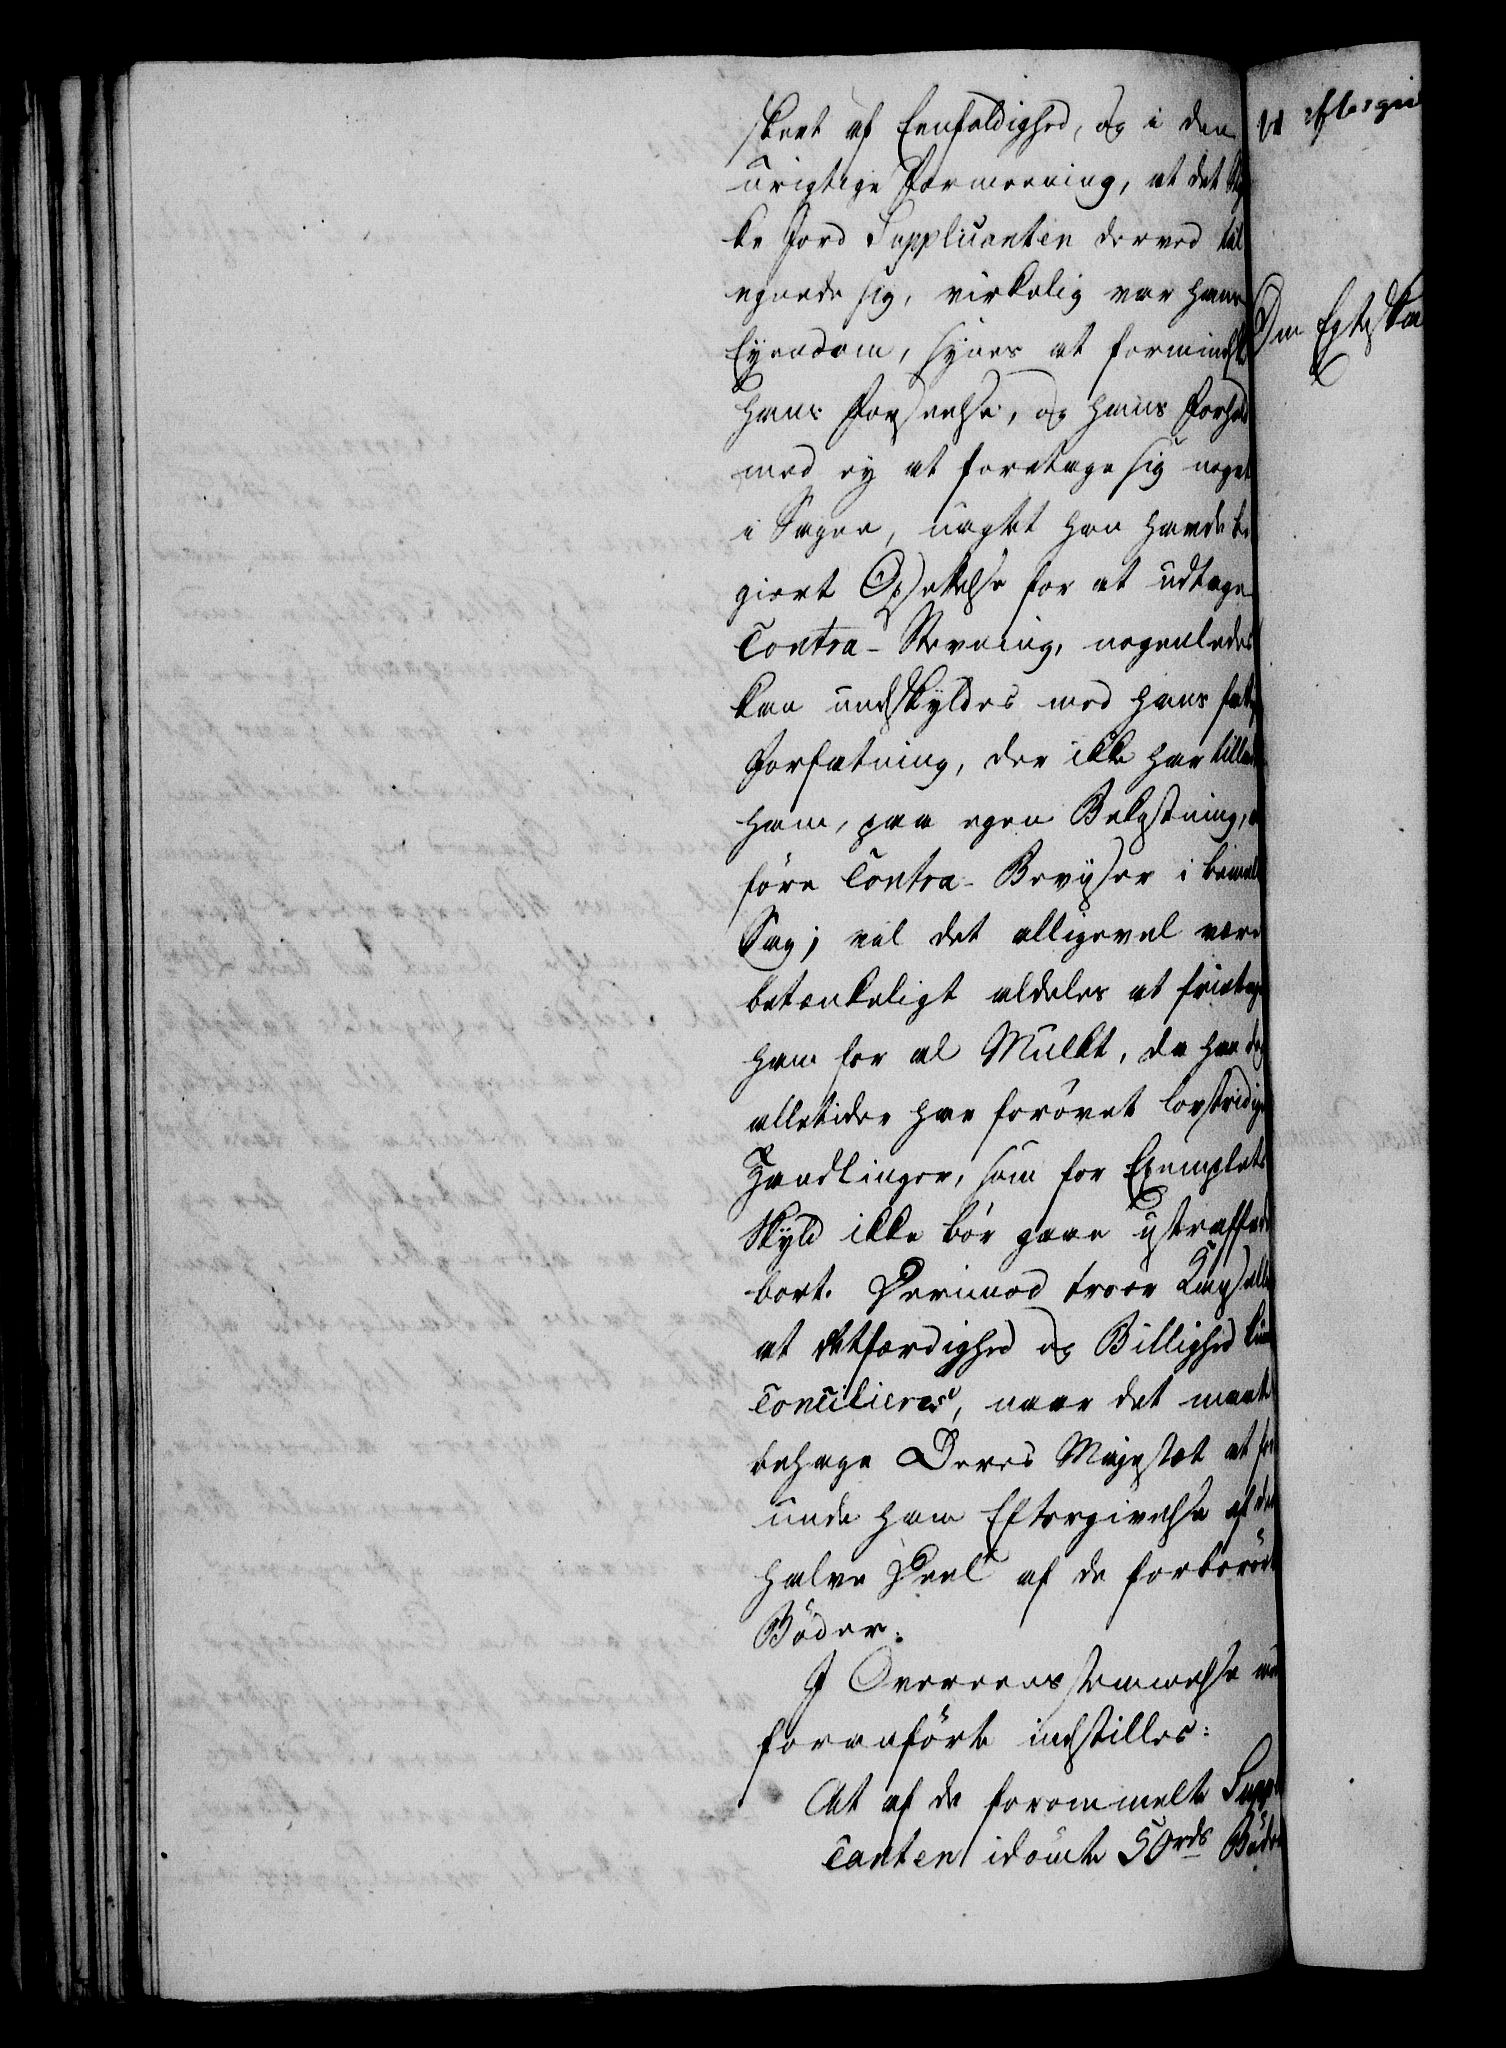 skeet af Eenfoldighed, og i den
urigtige Formeening, at det
ke Jord Supplicanten derved til
egnede sig, virkelig var hans
Eyendom, synes at formindske
hans Forseelse, og hans Forhold
med ey at foretage sig noget
i Sagen, uagtet han havde be
giert Opsettelse for at udtage
Contra-Stevning, nogenledes
kan undskyldes med hans
Forfatning, der ikke har tilladt
ham, paa egen Bekostning, at
före Contra-Beviiser i bemelte
Sag; vil det alligevel være
betænkeligt aldeles at fritage
ham for al Mulkt, da han dog
alletider har forövet lovstridige
Handlinger, som for Exemplets
Skyld ikke bör gaae ustraffede
bort. Derimod troer
at Retfærdighed og Billighed kunde
Concilieres, naar det maatte
behage Deres Majestæt at for
unde ham Eftergivelse af den
halve Deel af de forbrödte
Böder.
I Overeensstemmelse med
foranförte indstilles:
At af de forommelte Suppli
canten idömte 50 rdr Böder